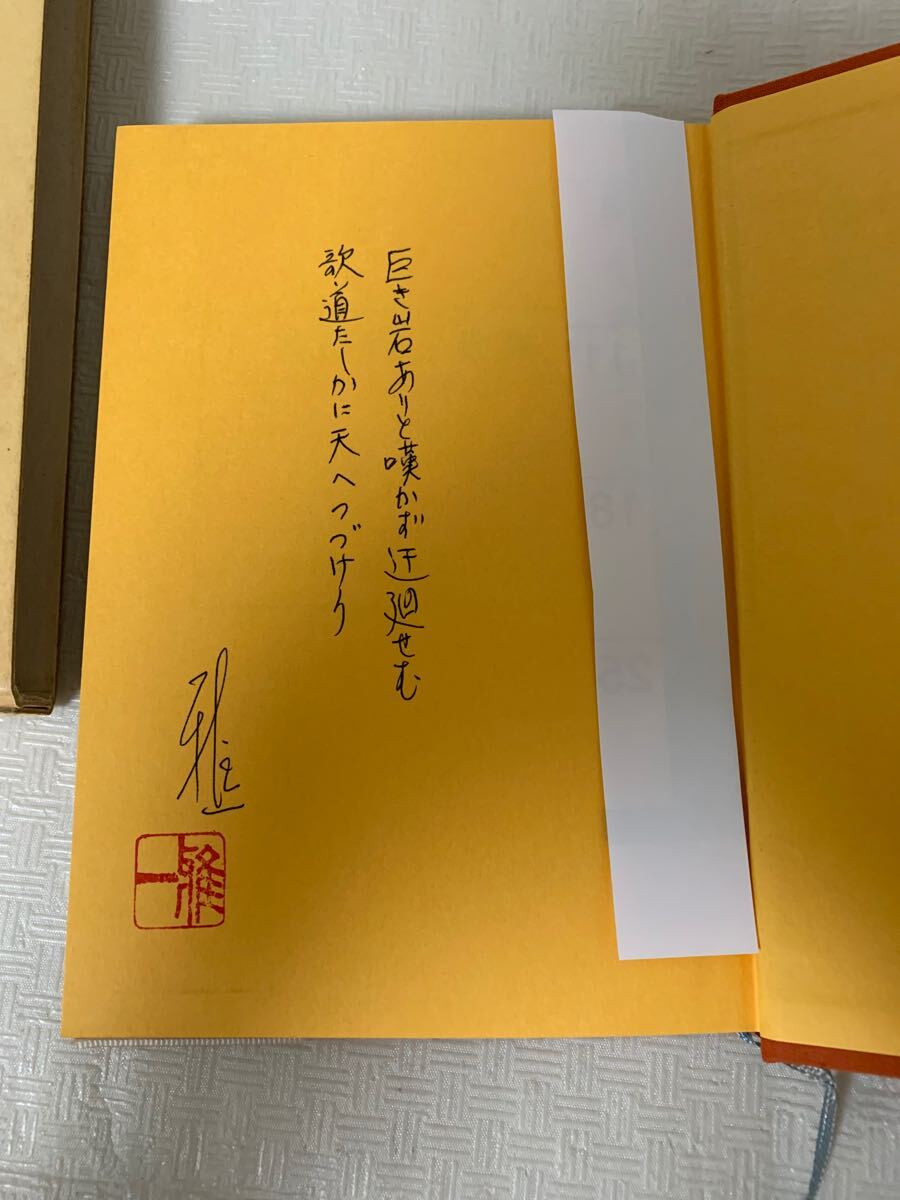 巨き岩ありと嘆かず迂廻せむ
歌の道たしかに天へつづけり
雅一
雅一
11
18
25